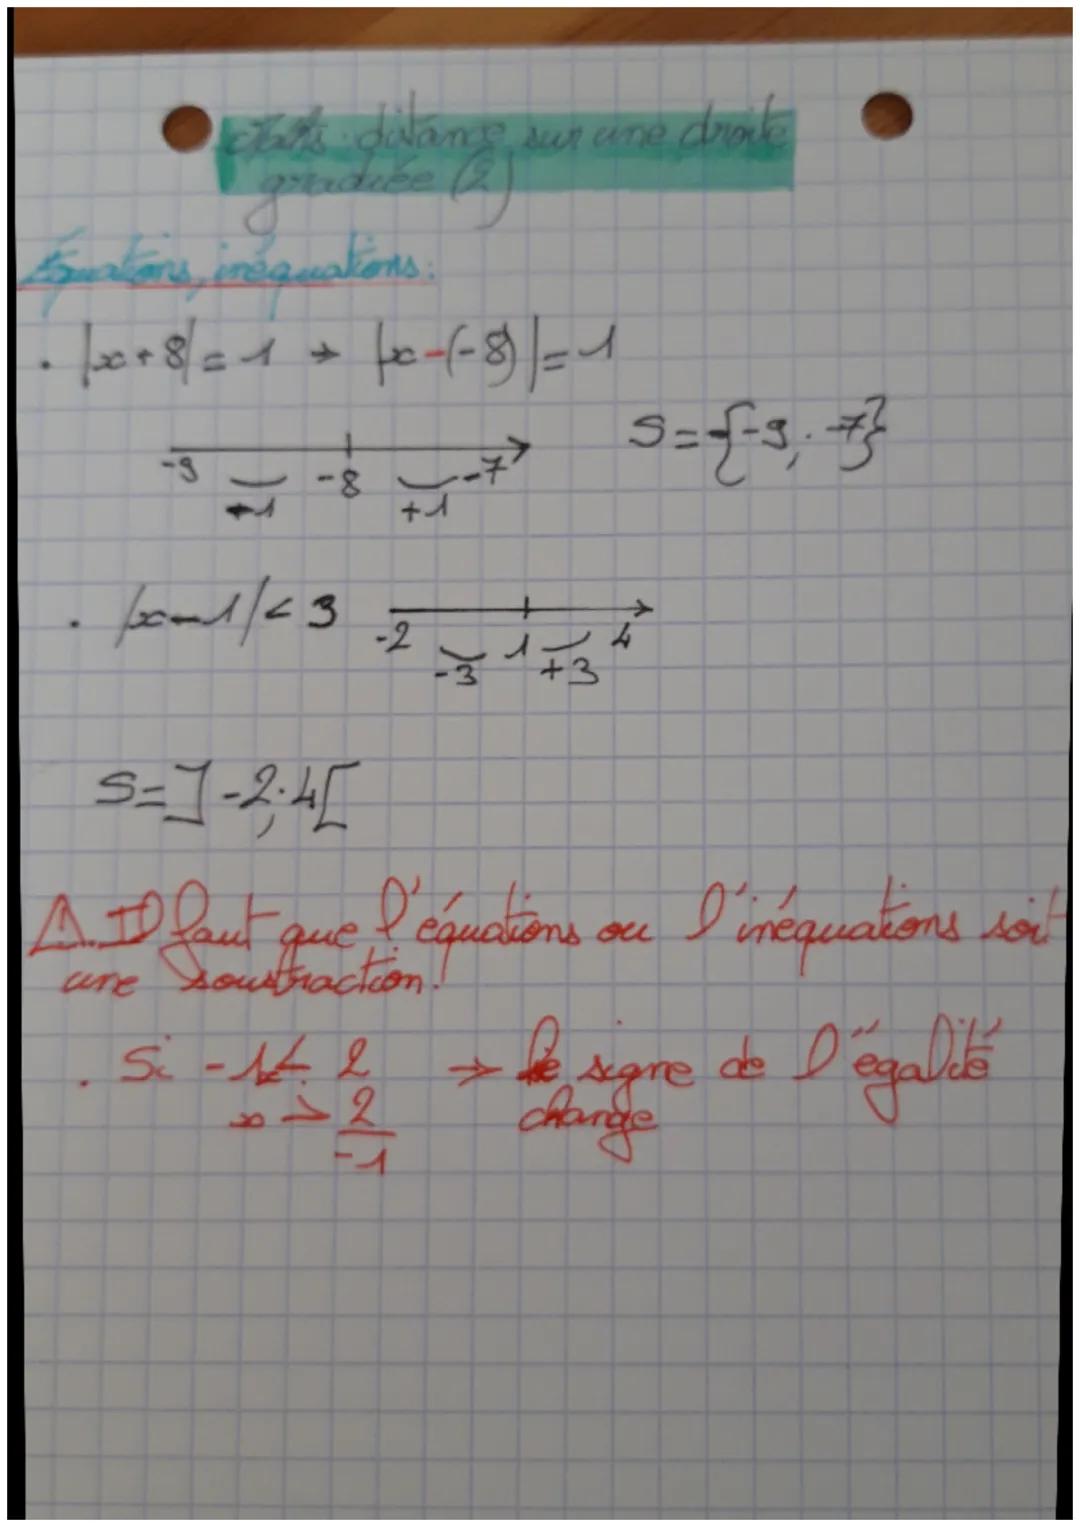 Maths: distance sur une droite
graduée (2)
Équations, inéquations:
. |x+8| = 1 → |x-(-8)| = 1
S={-9; -7}
-9 -8 -7
-1 +1
. |x-1| < 3
-2 1 4
-3 +3
S=]-2;4[
⚠. Il faut que l'équations ou l'inéquations soit
une soustraction!
. Si -1x < 2 → le signe de l'égalité
x > 2/-1 change